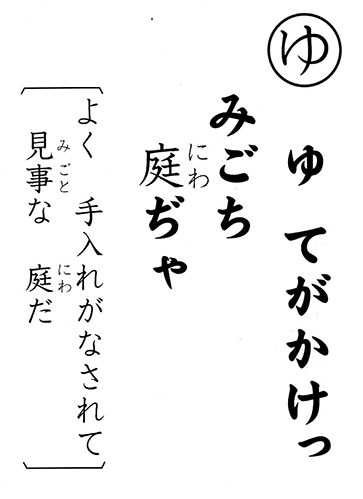 ゆ
ゆ てがかけっ
みごち
庭ぢゃ
にわ
よく 手入れがなされて
見事な 庭だ
みごと にわ